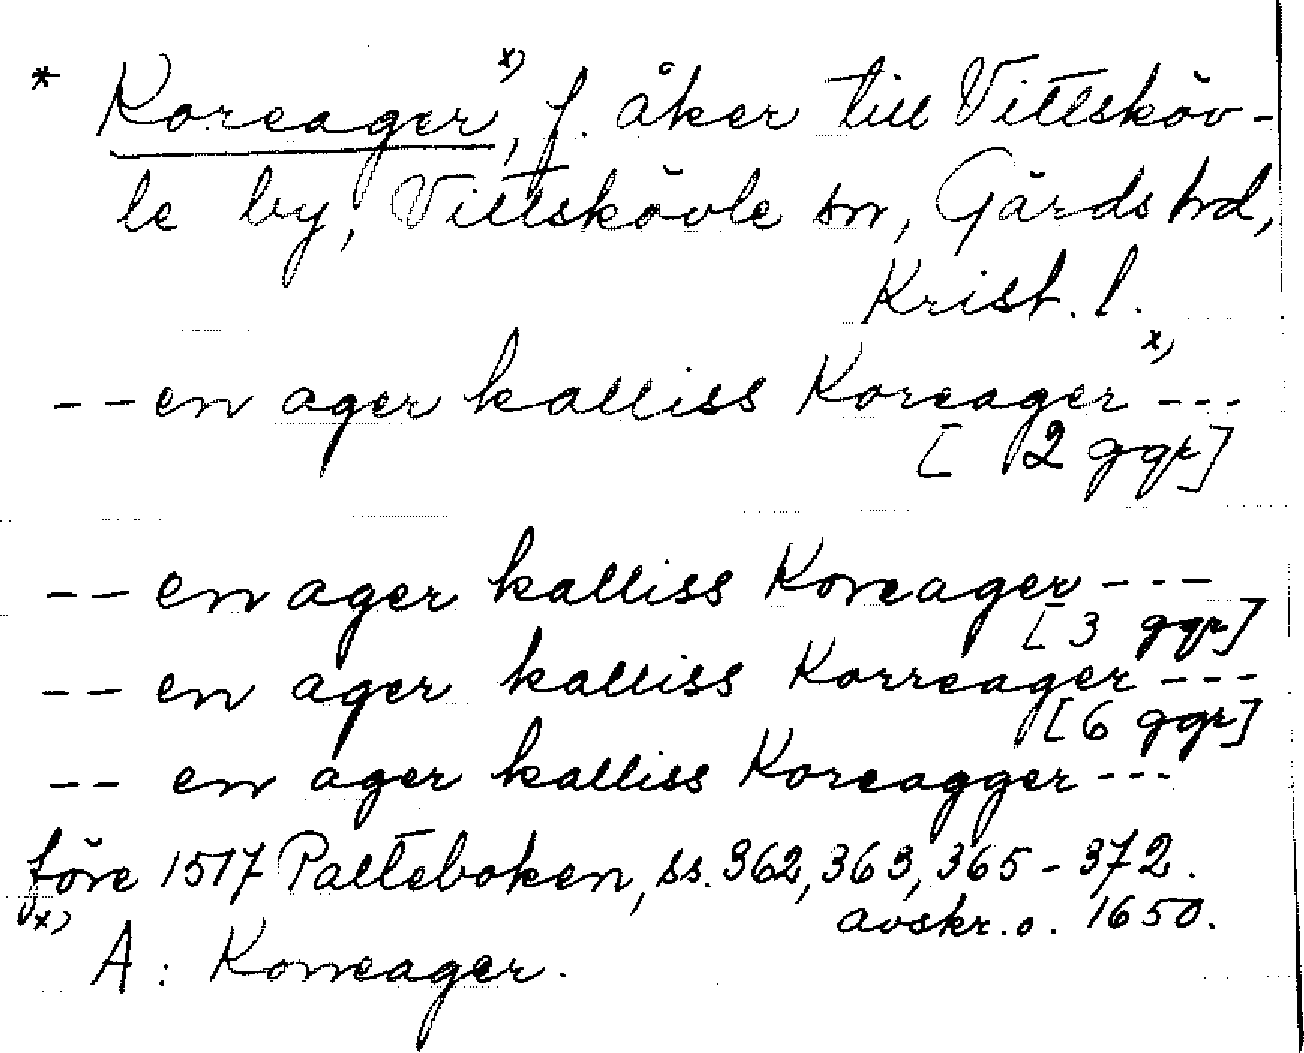 * Koreager x), f. åker till Vittsköv-
le by, Vittskövle sn, Gärds hd,
Krist. l.
-- en ager kalliss Koreager x) ---
[12 ggr]
-- en ager kalliss Korreager ---
[3 ggr]
-- en ager kalliss Korreager ---
[6 ggr]
-- en ager kalliss Koreagger ---
före 1517 Palteboken, ss. 362, 363, 365-372.
avskr. o. 1650.
x)
A: Korreager.